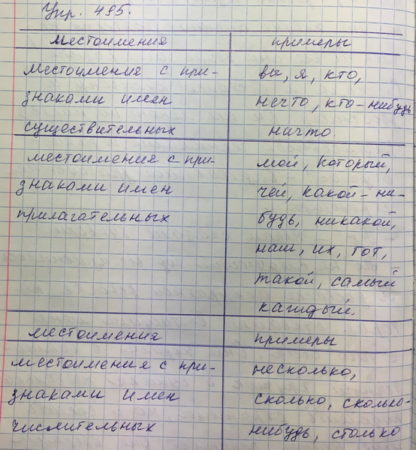 Упр. 495.
местоимения примеры
местоимения с при- вы, я, кто,
знаками имен нечто, кто-нибудь
существительных ничто.
местоимения с при- мой, который,
знаками имен чей, какой-ни-
прилагательных будь, никакой,
наш, их, тот,
такой, самый
каждый.
местоимения примеры
местоимения с при- несколько,
знаками имен сколько, сколько-
числительных нибудь, столько